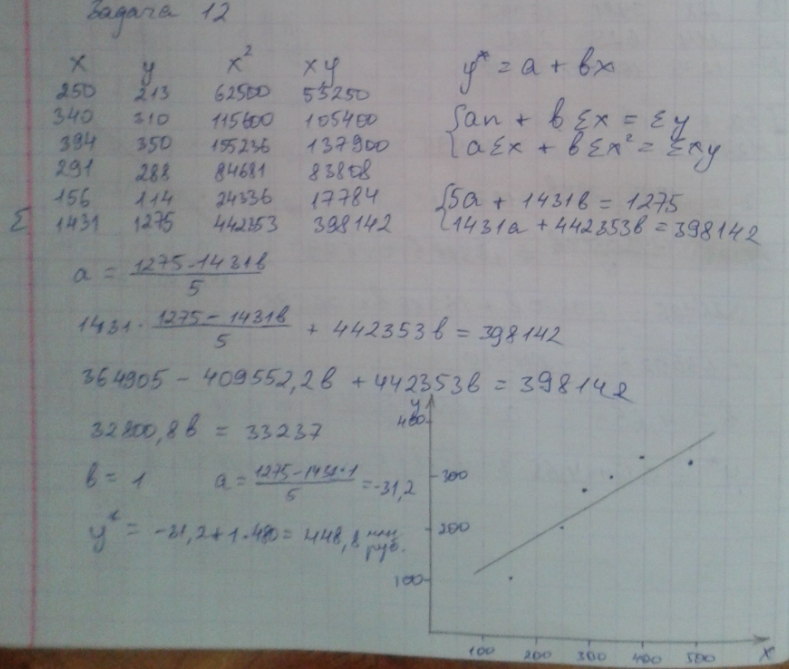 Задача 12
x y x² xy
250 213 62500 53250
340 310 115600 105400
394 350 155236 137900
291 288 84681 83808
156 114 24336 17784
Σ 1431 1275 442353 398142
y* = a + bx
{an + bΣx = Σy
{aΣx + bΣx² = Σxy
{5a + 1431b = 1275
{1431a + 442353b = 398142
a = (1275-1431b)/5
1431 · (1275-1431b)/5 + 442353b = 398142
364905 - 409552,2b + 442353b = 398142
32800,8b = 33237
b = 1 a = (1275-1431·1)/5 = -31,2
y* = -31,2+1·480 = 448,8 млн руб.
y
400
300
200
100
100 200 300 400 500 x